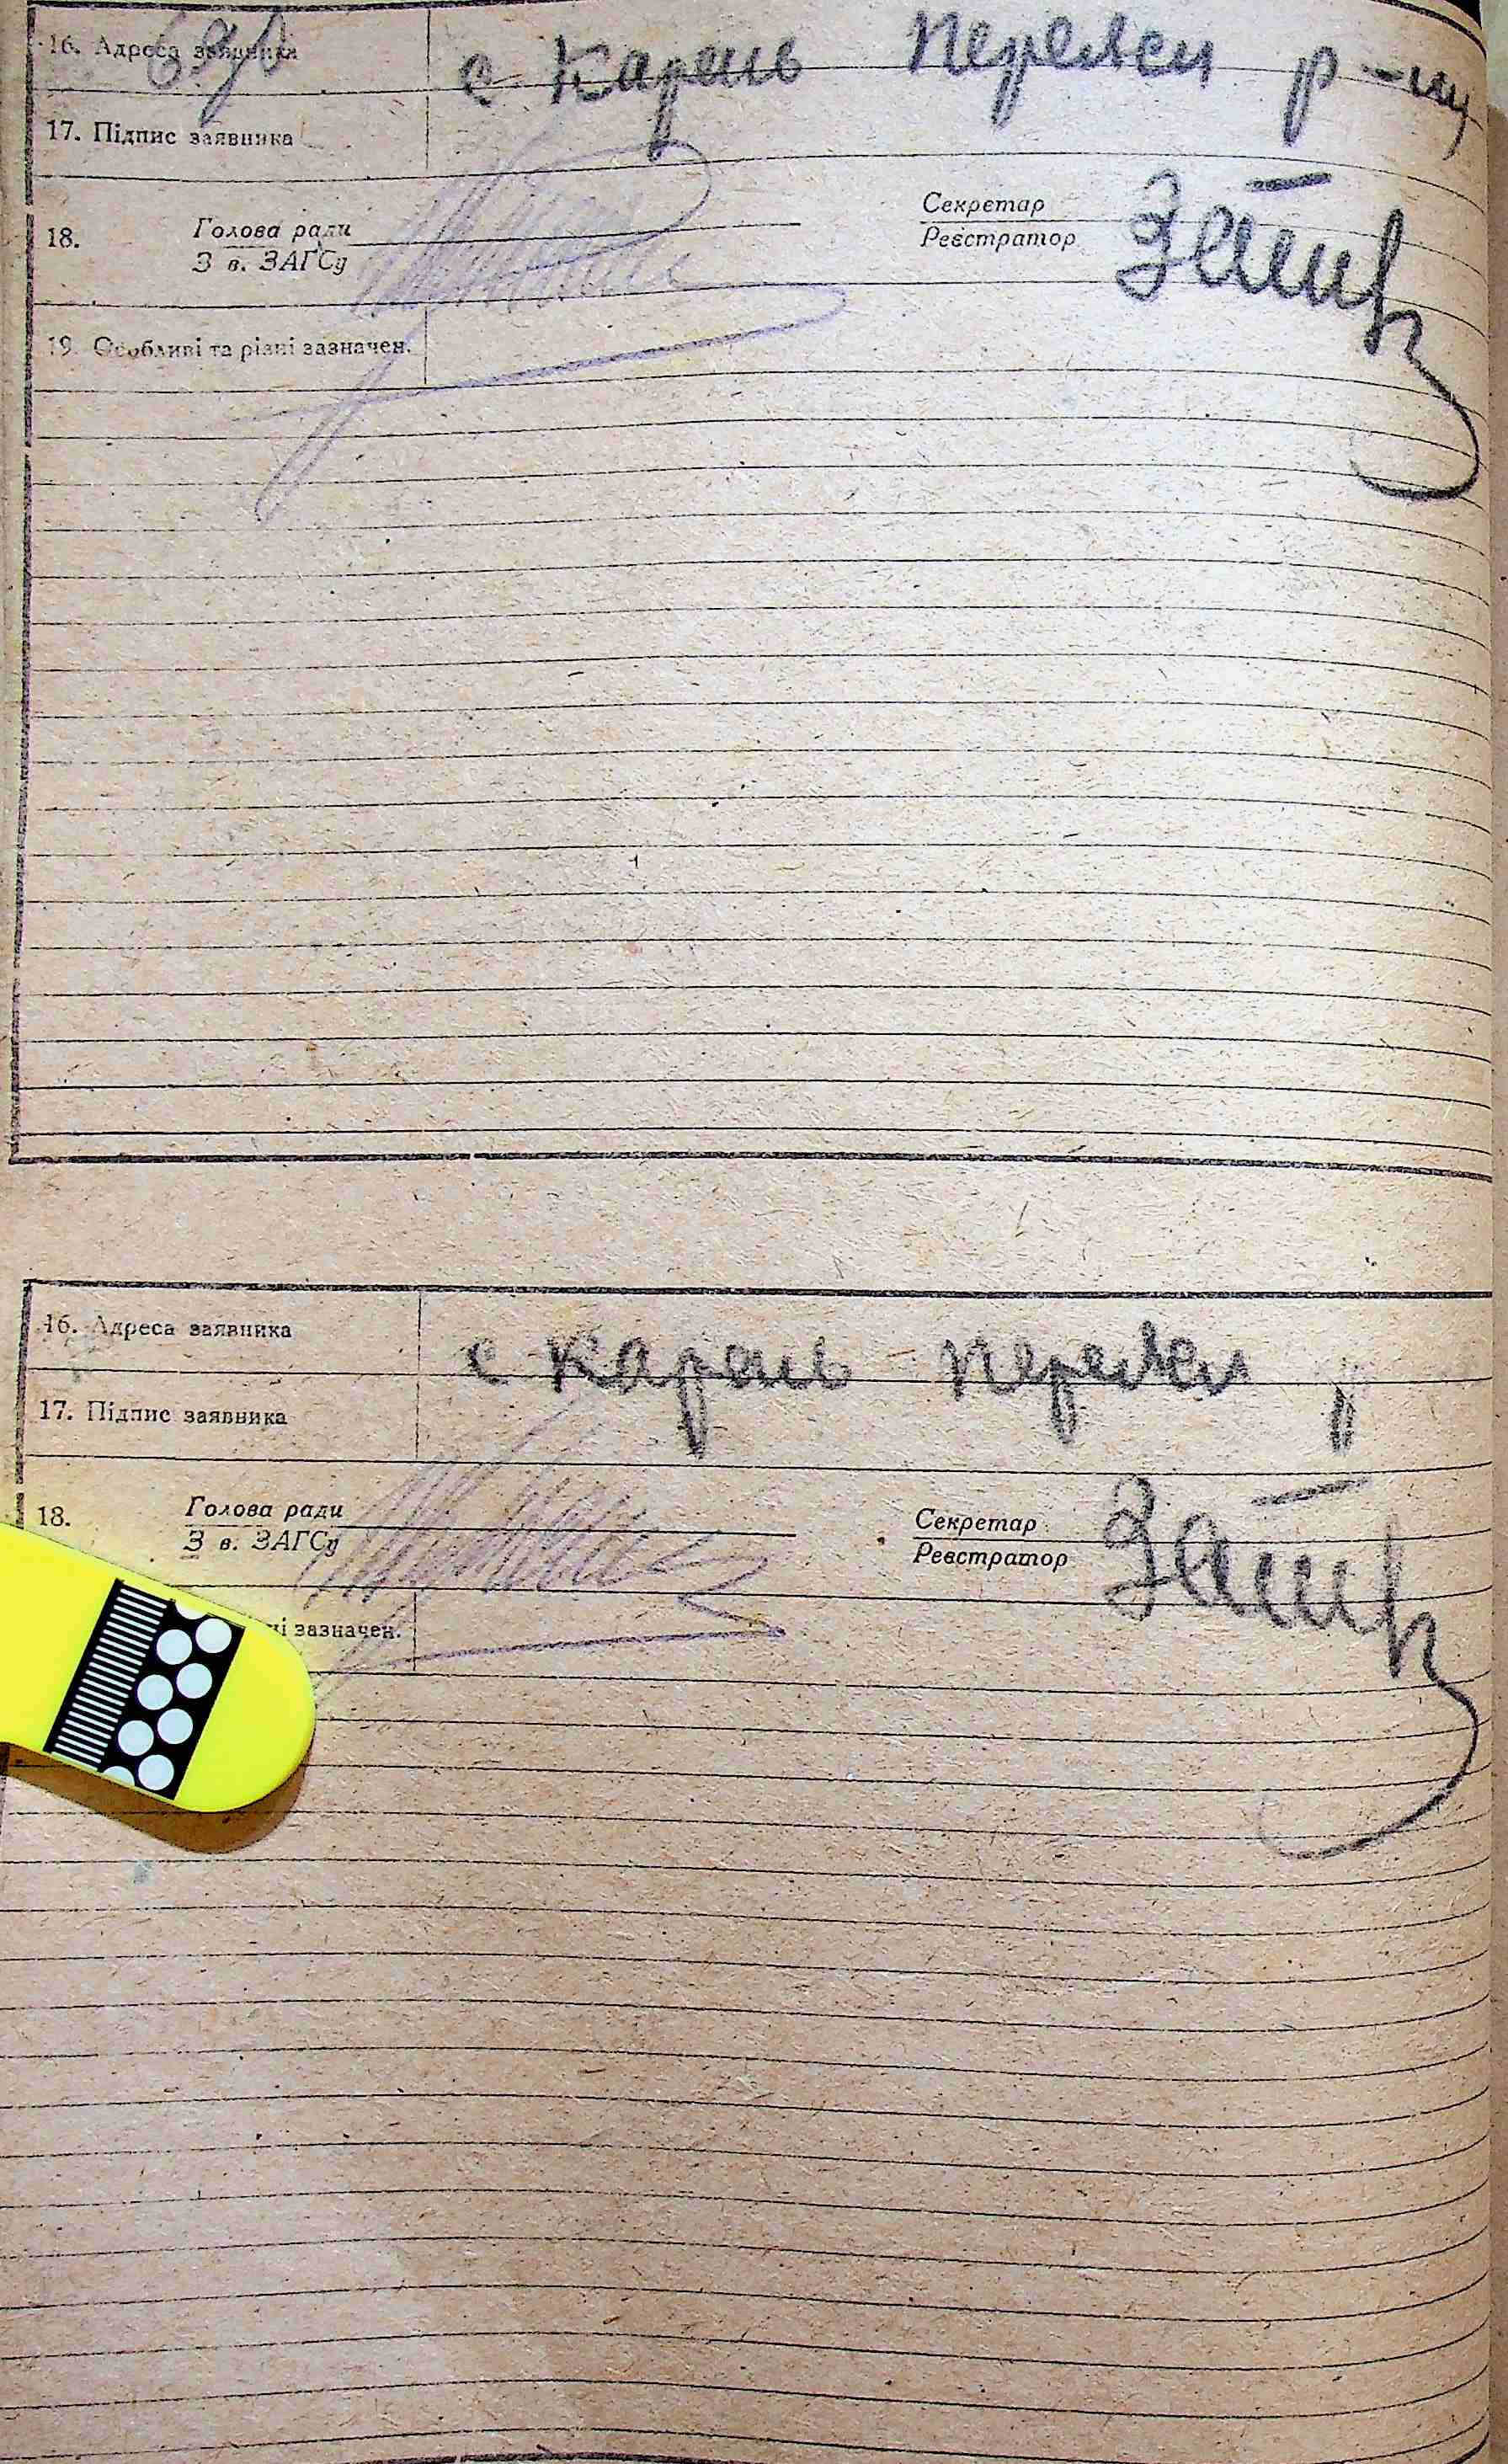 16. Адреса заявника с Карань Переясл р-ну
17. Підпис заявника
18. Голова ради Секретар
З в. ЗАГСу Реєстратор
19. Особливі та різні зазначен.
16. Адреса заявника с Карань Переясл
17. Підпис заявника
18. Голова ради Секретар
З в. ЗАГСу Реєстратор
ні зазначен.